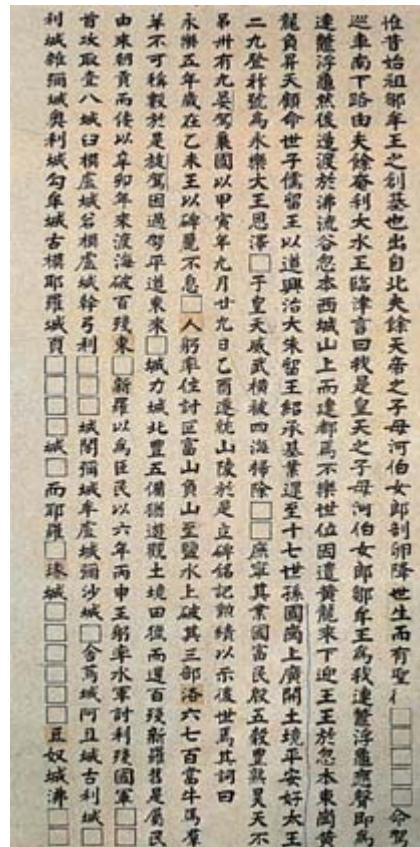 惟昔始祖鄒牟王之創基也出自北夫餘天帝之子母河伯女郎剖卵降世生而有聖彳□□□□命駕
巡車南下路由夫餘奄利大水王臨津言曰我是皇天之子母河伯女郎鄒牟王為我連鼈浮龜應聲即為
連鼈浮龜然後造渡於沸流谷忽本西城山上而建都焉不樂世位因遣黃龍來下迎王王於忽本東崗黃
龍負昇天顧命世子儒留王以道興治大朱留王紹承基業遝至十七世孫國崗上廣開土境平安好太王
二九登祚號為永樂大王恩澤□于皇天威武橫被四海掃除□□庶寧其業國富民殷五穀豊熟昊天不
弔卅有九晏駕棄國以甲寅年九月廿九日乙酉遷就山陵於是立碑銘記勳績以示後世焉其詞曰
永樂五年歲在乙未王以碑麗不息□人躬率住討叵富山負山至鹽水上破其三部洛六七百當牛馬羣
羊不可稱數於是旋駕因過平道東来□城力城北豊五備猶遊觀土境田獵而還百殘新羅舊是屬民
由来朝貢而倭以辛卯年来渡海破百殘東□新羅以為臣民以六年丙申王躬率水軍討利殘國軍□□
首攻取壹八城臼模盧城若模盧城幹弓利□□城閣彌城牟盧城彌沙城□舍蔦城阿旦城古利城□
利城雜彌城奧利城勾牟城古模耶羅城頁□□□□城□而耶羅□瑑城□□□□□豆奴城沸□□